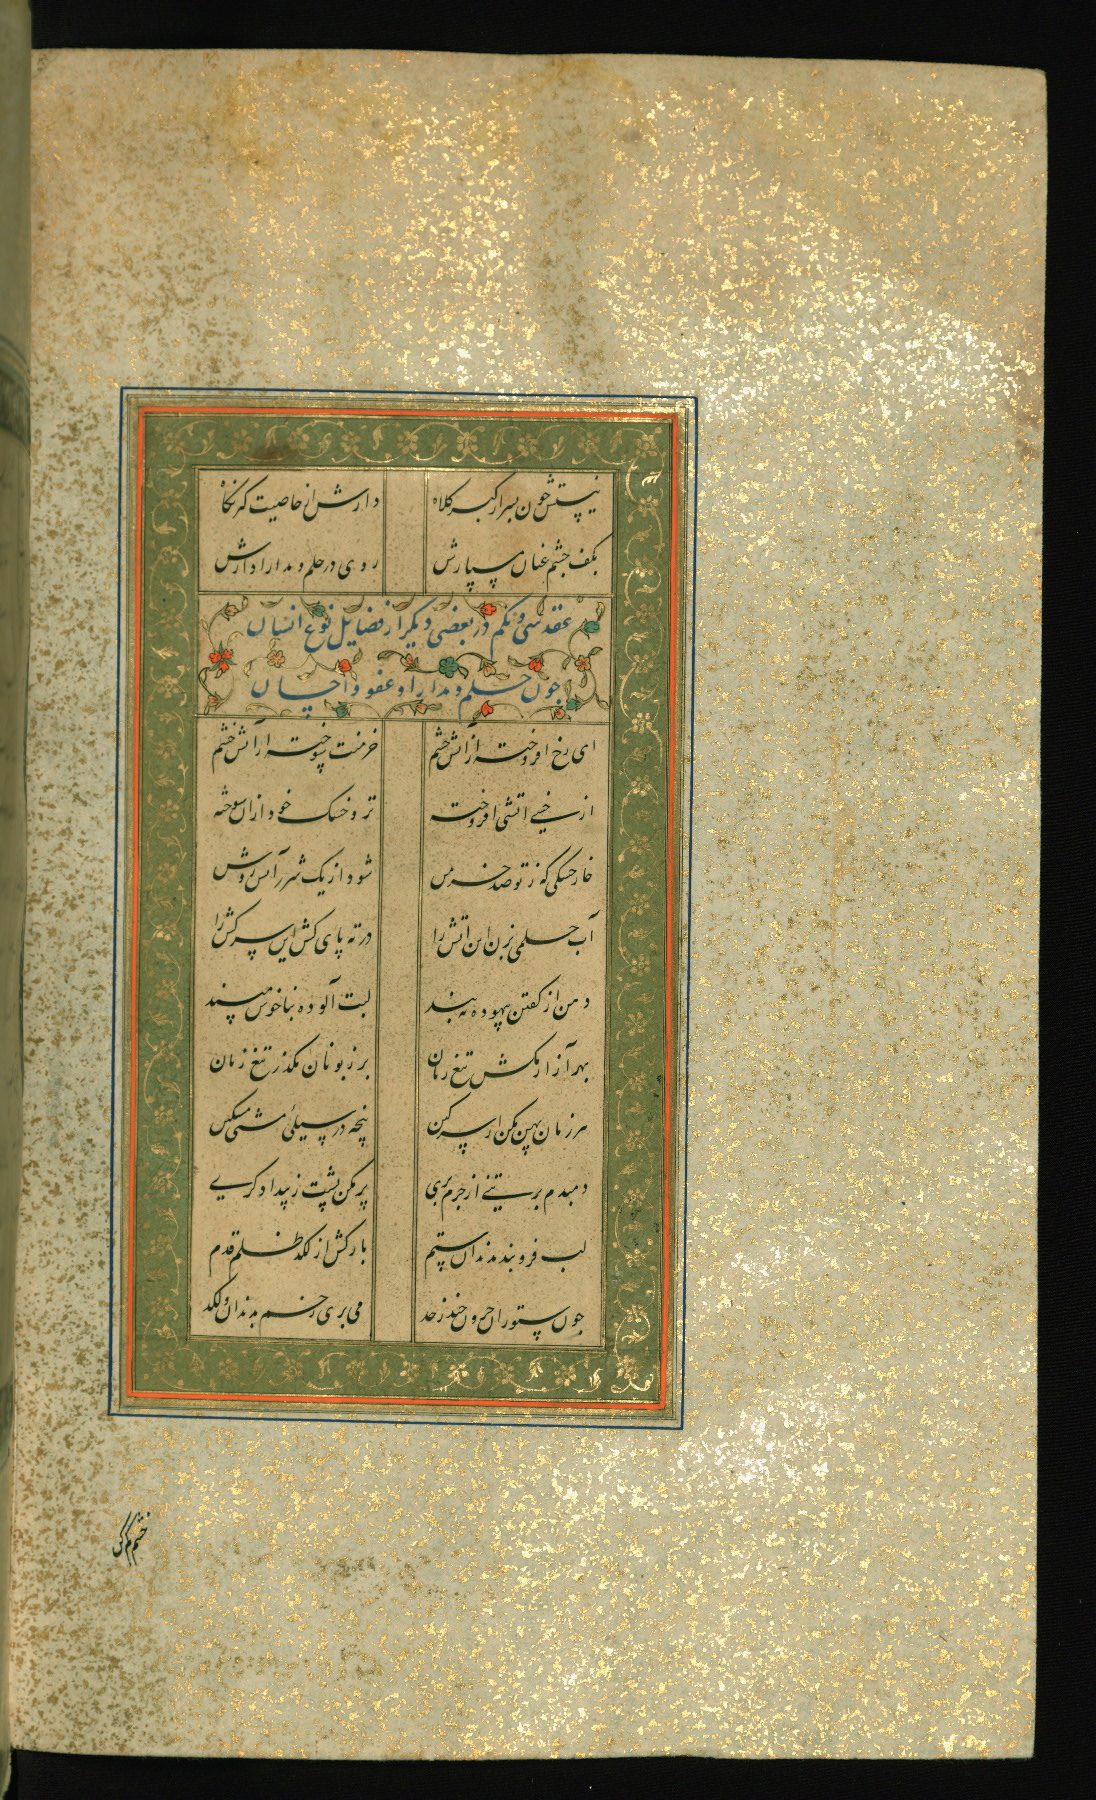 نیستش چون بسر از کبر کلاه دارش از خاصیت کر نکاه
بکف خشم عنان مسپارش روی در حلم و مدارا دارش
عقد سی و یکم در بعضی دیکر از فضایل نوع انسان
چون حلم و مدارا و عفو و احسان
ای رخ افروخته از آتش خشم خرمنت سوخته از آتش خشم
از خسی آتشی افروخته تر و خشک خود از ان سوخته
خار خشکی که ز تو صد خرمن شود از یک شرر آتش روشن
آب حلمی بزن این آتش را در ته پای کش این سرکش را
دهن از کفتن بیهوده ببند لبت آلوده بناخوش مپسند
بهر آزار مکش تیغ زبان بر زبونان مکذر تیغ زنان
هر زمان پهن مکن از سر کین پنجه در سیلی مشتی مسکین
دمبدم بر تنی از جرم بری پر مکن پشت ز بیداد کری
لب فرو بند ز دندان ستم باز کش از لکد ظلم قدم
چون ستوران حرون چند ز حد می بری زخم بدندان و لکد
خشم کم کن